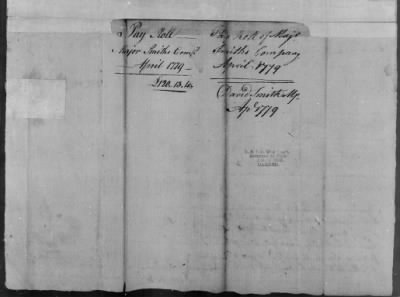 Pay Roll
Major Smiths Compy
April 1779
Pay Roll of Majr
Smiths Company
April 1779
David Smith Mjr
Apl 1779